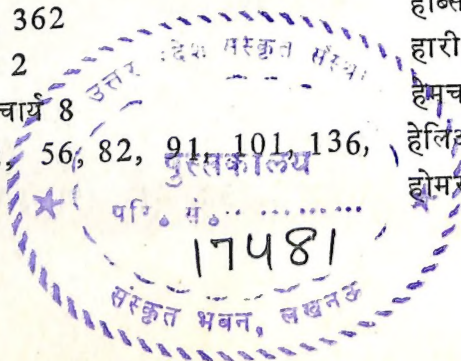 362
2
चार्य 8
56, 82, 91, 101, 136,
हारी
हेमच
उत्तर देश संस्कृत संस्था
पुस्तकालय
परि. सं. ...........
17481
संस्कृत भवन, लखनऊ